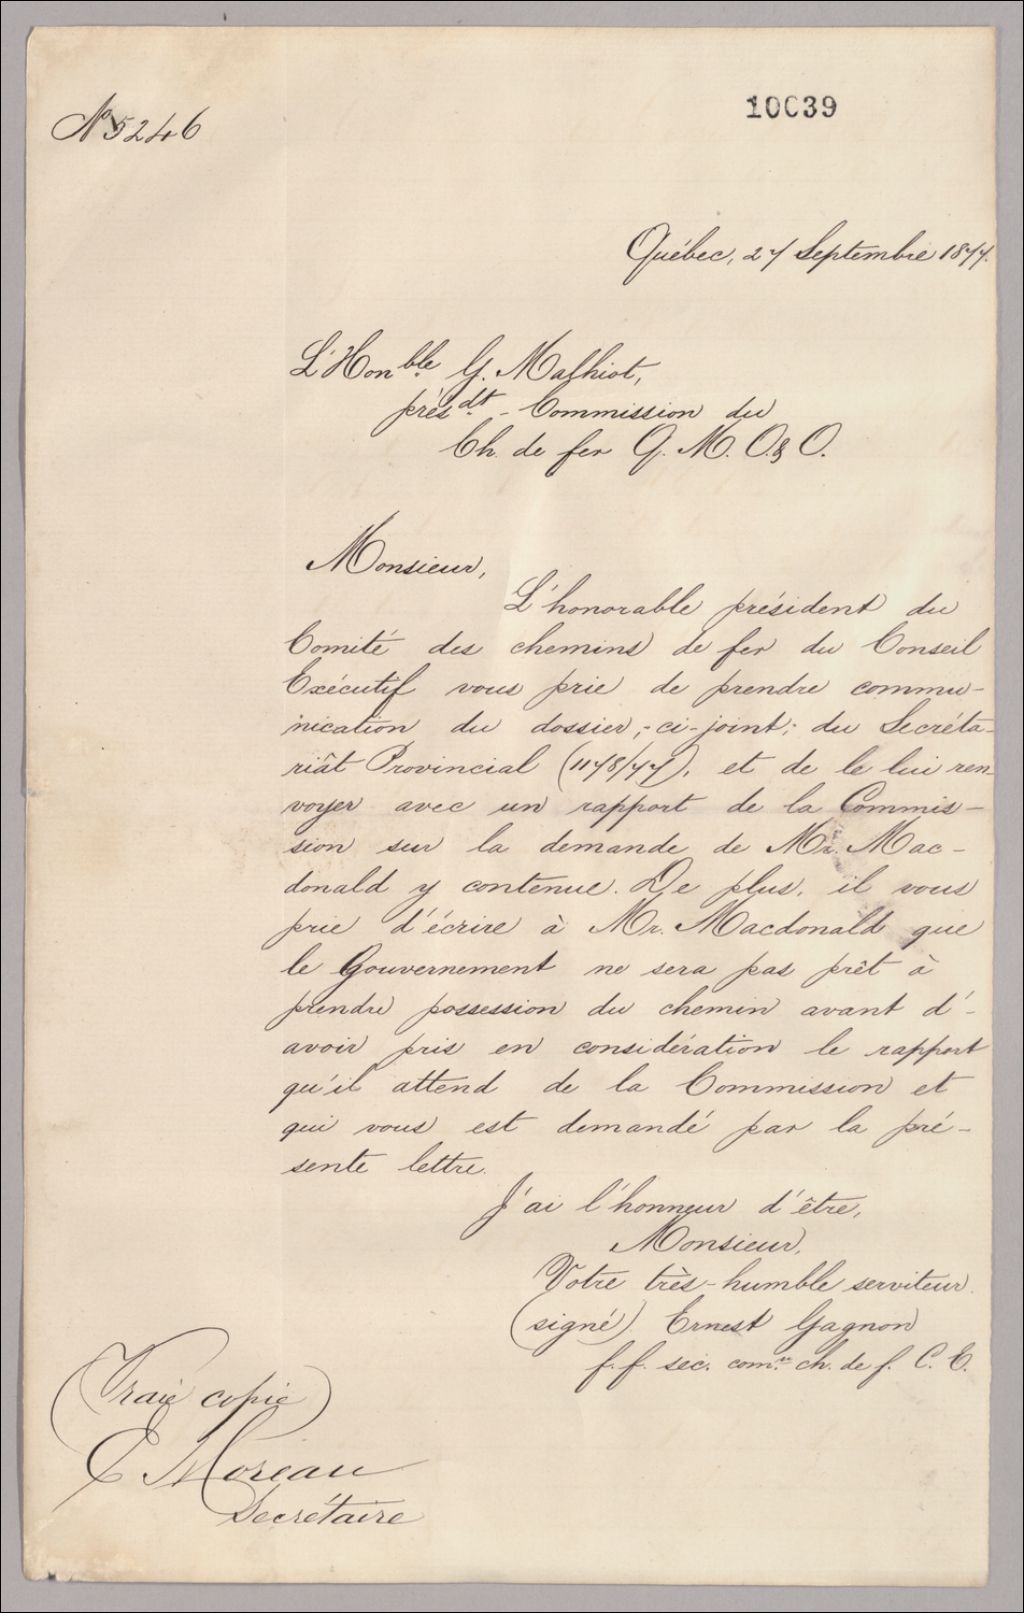 No 5246
10039
Québec, 27 Septembre 1877.
L'Honble. G. Malhiot,
présdt. - Commission du
Ch. de fer Q. M. O. & O.
Monsieur,
L'honorable président du
Comité des chemins de fer du Conseil
Exécutif vous prie de prendre commu-
nication du dossier, - ci-joint, - du Secréta-
riât Provincial (1178/77), et de le lui ren
voyer avec un rapport de la Commis-
sion sur la demande de Mr. Mac-
donald y contenue. De plus, il vous
prie d'écrire à Mr. Macdonald que
le Gouvernement ne sera pas prêt à
prendre possession du chemin avant d'-
avoir pris en considération le rapport
qu'il attend de la Commission et
qui vous est demandé par la pré-
sente lettre.
J'ai l'honneur d'être,
Monsieur,
Votre très-humble serviteur.
(signé) Ernest Gagnon
f. f. sec. ch. de f. C. E.
(Vraie copie)
E Moreau
Secrétaire